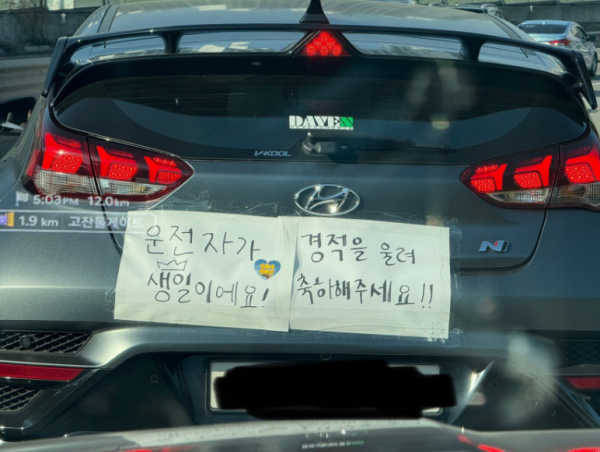 DAWE
V-KOOL
5:03PM 12.0km
1.9 km 고잔톨게이트
운전자가
생일이에요!
경적을 울려
축하해주세요!!
N